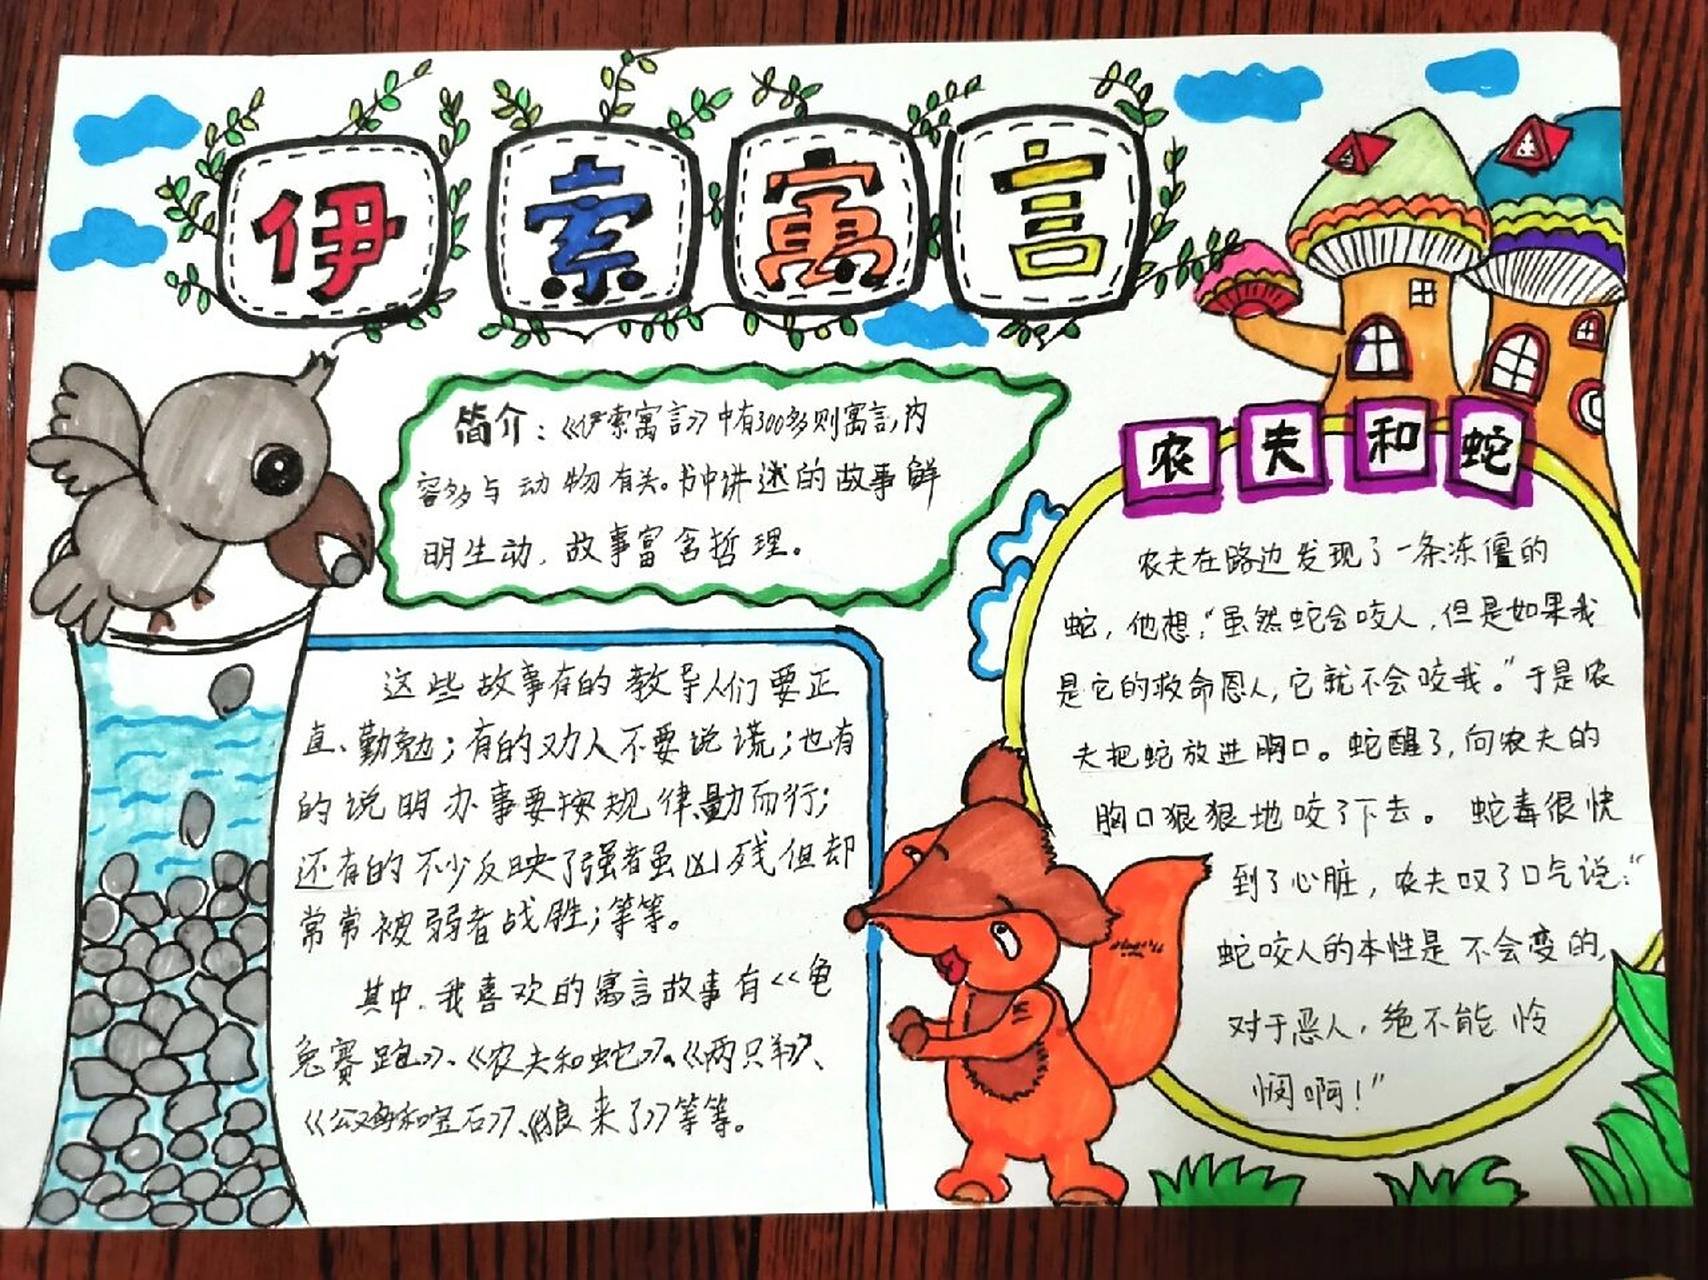 伊索寓言
简介：《伊索寓言》中有300多则寓言,内
容多与动物有关。书中讲述的故事鲜
明生动，故事富含哲理。
这些故事有的教导人们要正
直、勤勉；有的劝人不要说谎；也有
的说明办事要按规律量力而行；
还有的不少反映了强者虽凶残但却
常常被弱者战胜；等等。
其中，我喜欢的寓言故事有《龟
兔赛跑》、《农夫和蛇》、《两只羊》、
《公鸡和宝石》、《狼来了》等等。
农夫和蛇
农夫在路边发现了一条冻僵的
蛇，他想，“虽然蛇会咬人，但是如果我
是它的救命恩人，它就不会咬我。”于是农
夫把蛇放进胸口。蛇醒了，向农夫的
胸口狠狠地咬了下去。蛇毒很快
到了心脏，农夫叹了口气说：“
蛇咬人的本性是不会变的，
对于恶人，绝不能怜
悯啊！”